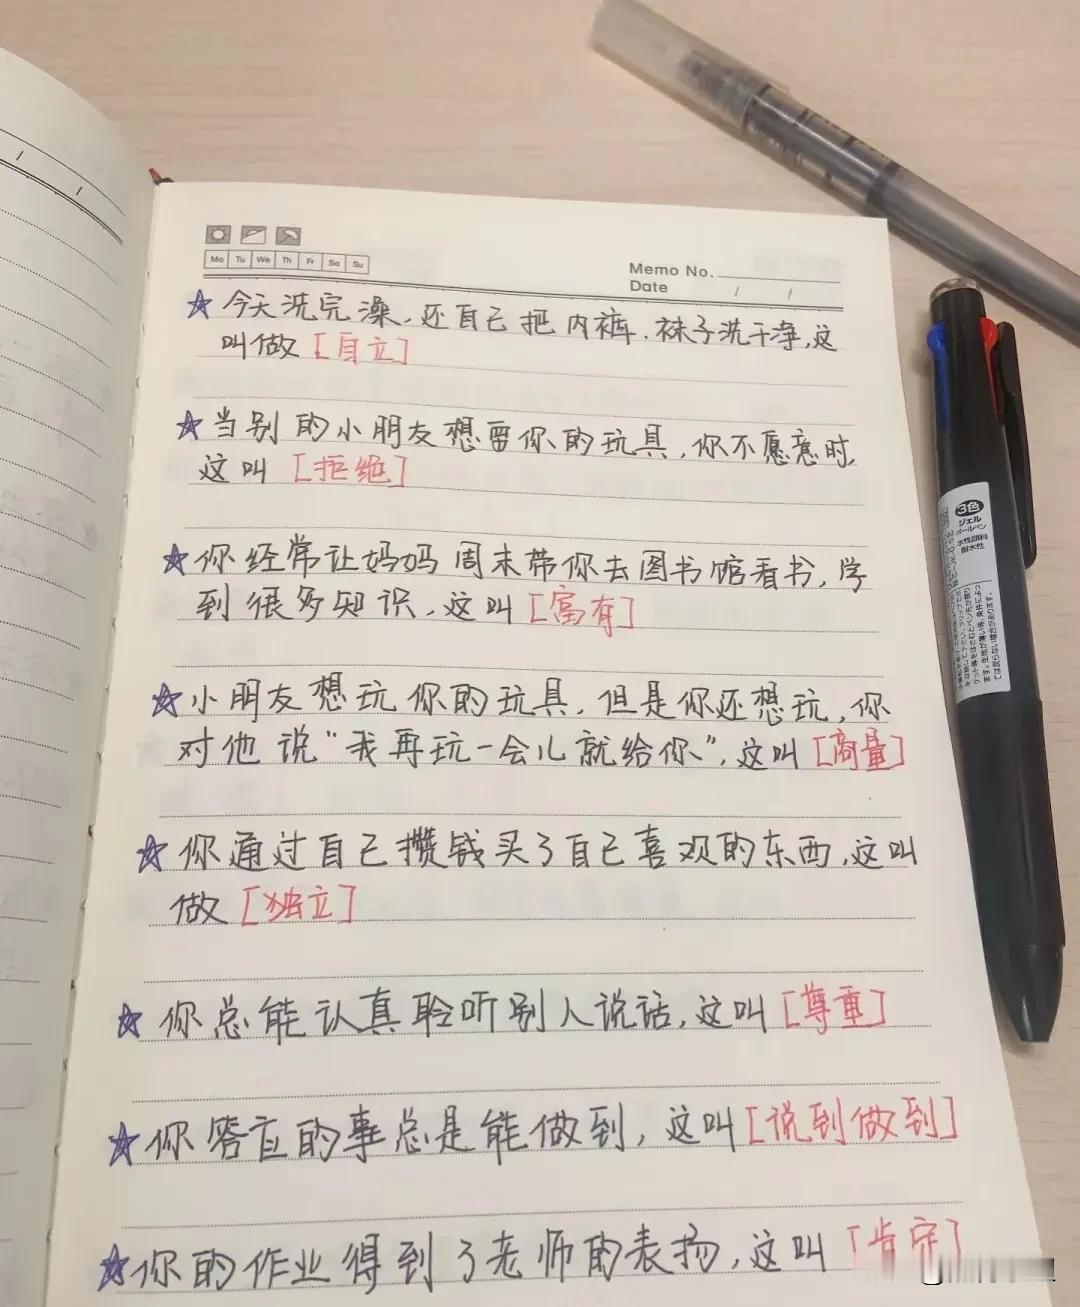 Mo Tu We Th Fr Sa Su
Memo No.
Date / /
★今天洗完澡,还自己把内裤、袜子洗干净,这
叫做[自立]
★当别的小朋友想要你的玩具,你不愿意时,
这叫[拒绝]
★你经常让妈妈周末带你去图书馆看书,学
到很多知识,这叫[富有]
★小朋友想玩你的玩具,但是你还想玩,你
对他说“我再玩一会儿就给你”,这叫[商量]
★你通过自己攒钱买了自己喜欢的东西,这叫
做[独立]
★你总能认真聆听别人说话,这叫[尊重]
★你答应的事总是能做到,这叫[说到做到]
★你的作业得到了老师的表扬,这叫[肯定]
3色
ジェル
ボールペン
水性顔料
耐水性